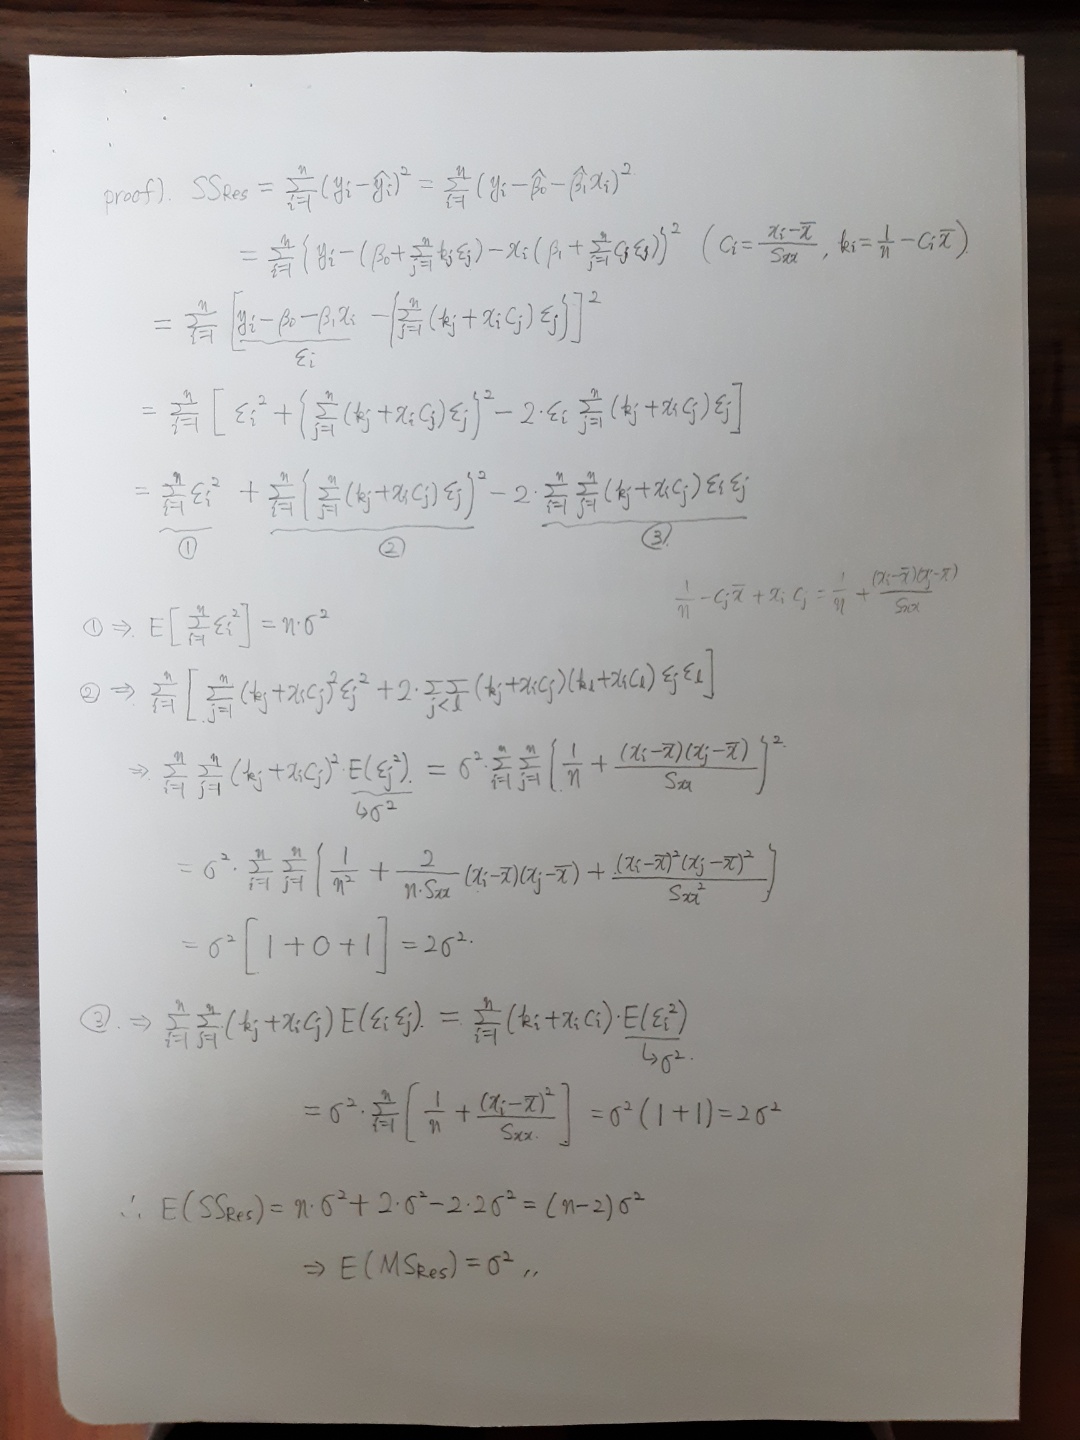 proof). SS_Res = Σ_{i=1}^{n} (y_i − ŷ_i)² = Σ_{i=1}^{n} (y_i − β̂_0 − β̂_1 x_i)²
= Σ_{i=1}^{n} { y_i − (β_0 + Σ_{j=1}^{n} k_j ε_j) − x_i (β_1 + Σ_{j=1}^{n} c_j ε_j) }² ( C_i = (x_i − x̄)/S_xx , k_i = 1/n − C_i x̄ )
= Σ_{i=1}^{n} [ y_i − β_0 − β_1 x_i − { Σ_{j=1}^{n} (k_j + x_i c_j) ε_j } ]²
ε_i
= Σ_{i=1}^{n} [ ε_i² + { Σ_{j=1}^{n} (k_j + x_i c_j) ε_j }² − 2·ε_i Σ_{j=1}^{n} (k_j + x_i c_j) ε_j ]
= Σ_{i=1}^{n} ε_i² + Σ_{i=1}^{n} { Σ_{j=1}^{n} (k_j + x_i c_j) ε_j }² − 2· Σ_{i=1}^{n} Σ_{j=1}^{n} (k_j + x_i c_j) ε_i ε_j
① ② ③
1/n − c_j x̄ + x_i c_j = 1/n + (x_i − x̄)(x_j − x̄)/S_xx
① ⇒ E[ Σ_{i=1}^{n} ε_i² ] = n·σ²
② ⇒ Σ_{i=1}^{n} [ Σ_{j=1}^{n} (k_j + x_i c_j)² ε_j² + 2· ΣΣ_{j<l} (k_j + x_i c_j)(k_l + x_i c_l) ε_j ε_l ]
⇒ Σ_{i=1}^{n} Σ_{j=1}^{n} (k_j + x_i c_j)² · E(ε_j²). = σ² · Σ_{i=1}^{n} Σ_{j=1}^{n} { 1/n + (x_i − x̄)(x_j − x̄)/S_xx }².
↳ σ²
= σ² · Σ_{i=1}^{n} Σ_{j=1}^{n} { 1/n² + 2/(n·S_xx) (x_i − x̄)(x_j − x̄) + (x_i − x̄)²(x_j − x̄)²/S_xx² }
= σ² [ 1 + 0 + 1 ] = 2σ².
③. ⇒ Σ_{i=1}^{n} Σ_{j=1}^{n} (k_j + x_i c_j) E(ε_i ε_j). = Σ_{i=1}^{n} (k_i + x_i c_i) · E(ε_i²)
↳ σ².
= σ² · Σ_{i=1}^{n} [ 1/n + (x_i − x̄)²/S_xx. ] = σ² (1+1) = 2σ²
∴ E(SS_Res) = n·σ² + 2·σ² − 2·2σ² = (n−2)σ²
⇒ E(MS_Res) = σ² ,,